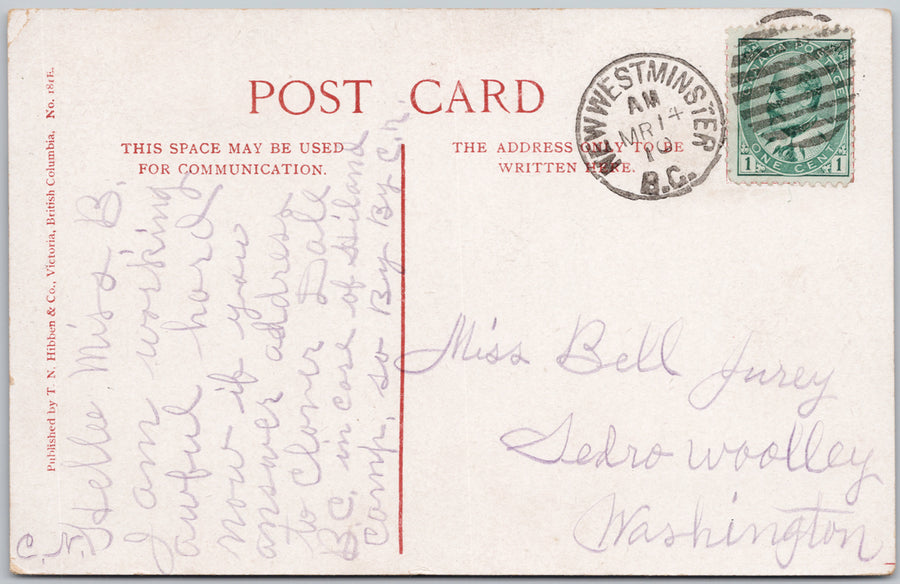 POST CARD
THIS SPACE MAY BE USED
FOR COMMUNICATION.
THE ADDRESS ONLY TO BE
WRITTEN HERE.
NEW WESTMINSTER
AM
MR 14
10
B.C.
CANADA POSTAGE
1 ONE CENT 1
Published by T. N. Hibben & Co., Victoria, British Columbia. No. 181E.
Hello Miss B.
I am working
awful hard
now if you
answer address
to Clover Dale
B.C. in care of Hiland
Comp. so By By
C. N.
Miss Bell Jurey
Sedro woolley
Washington